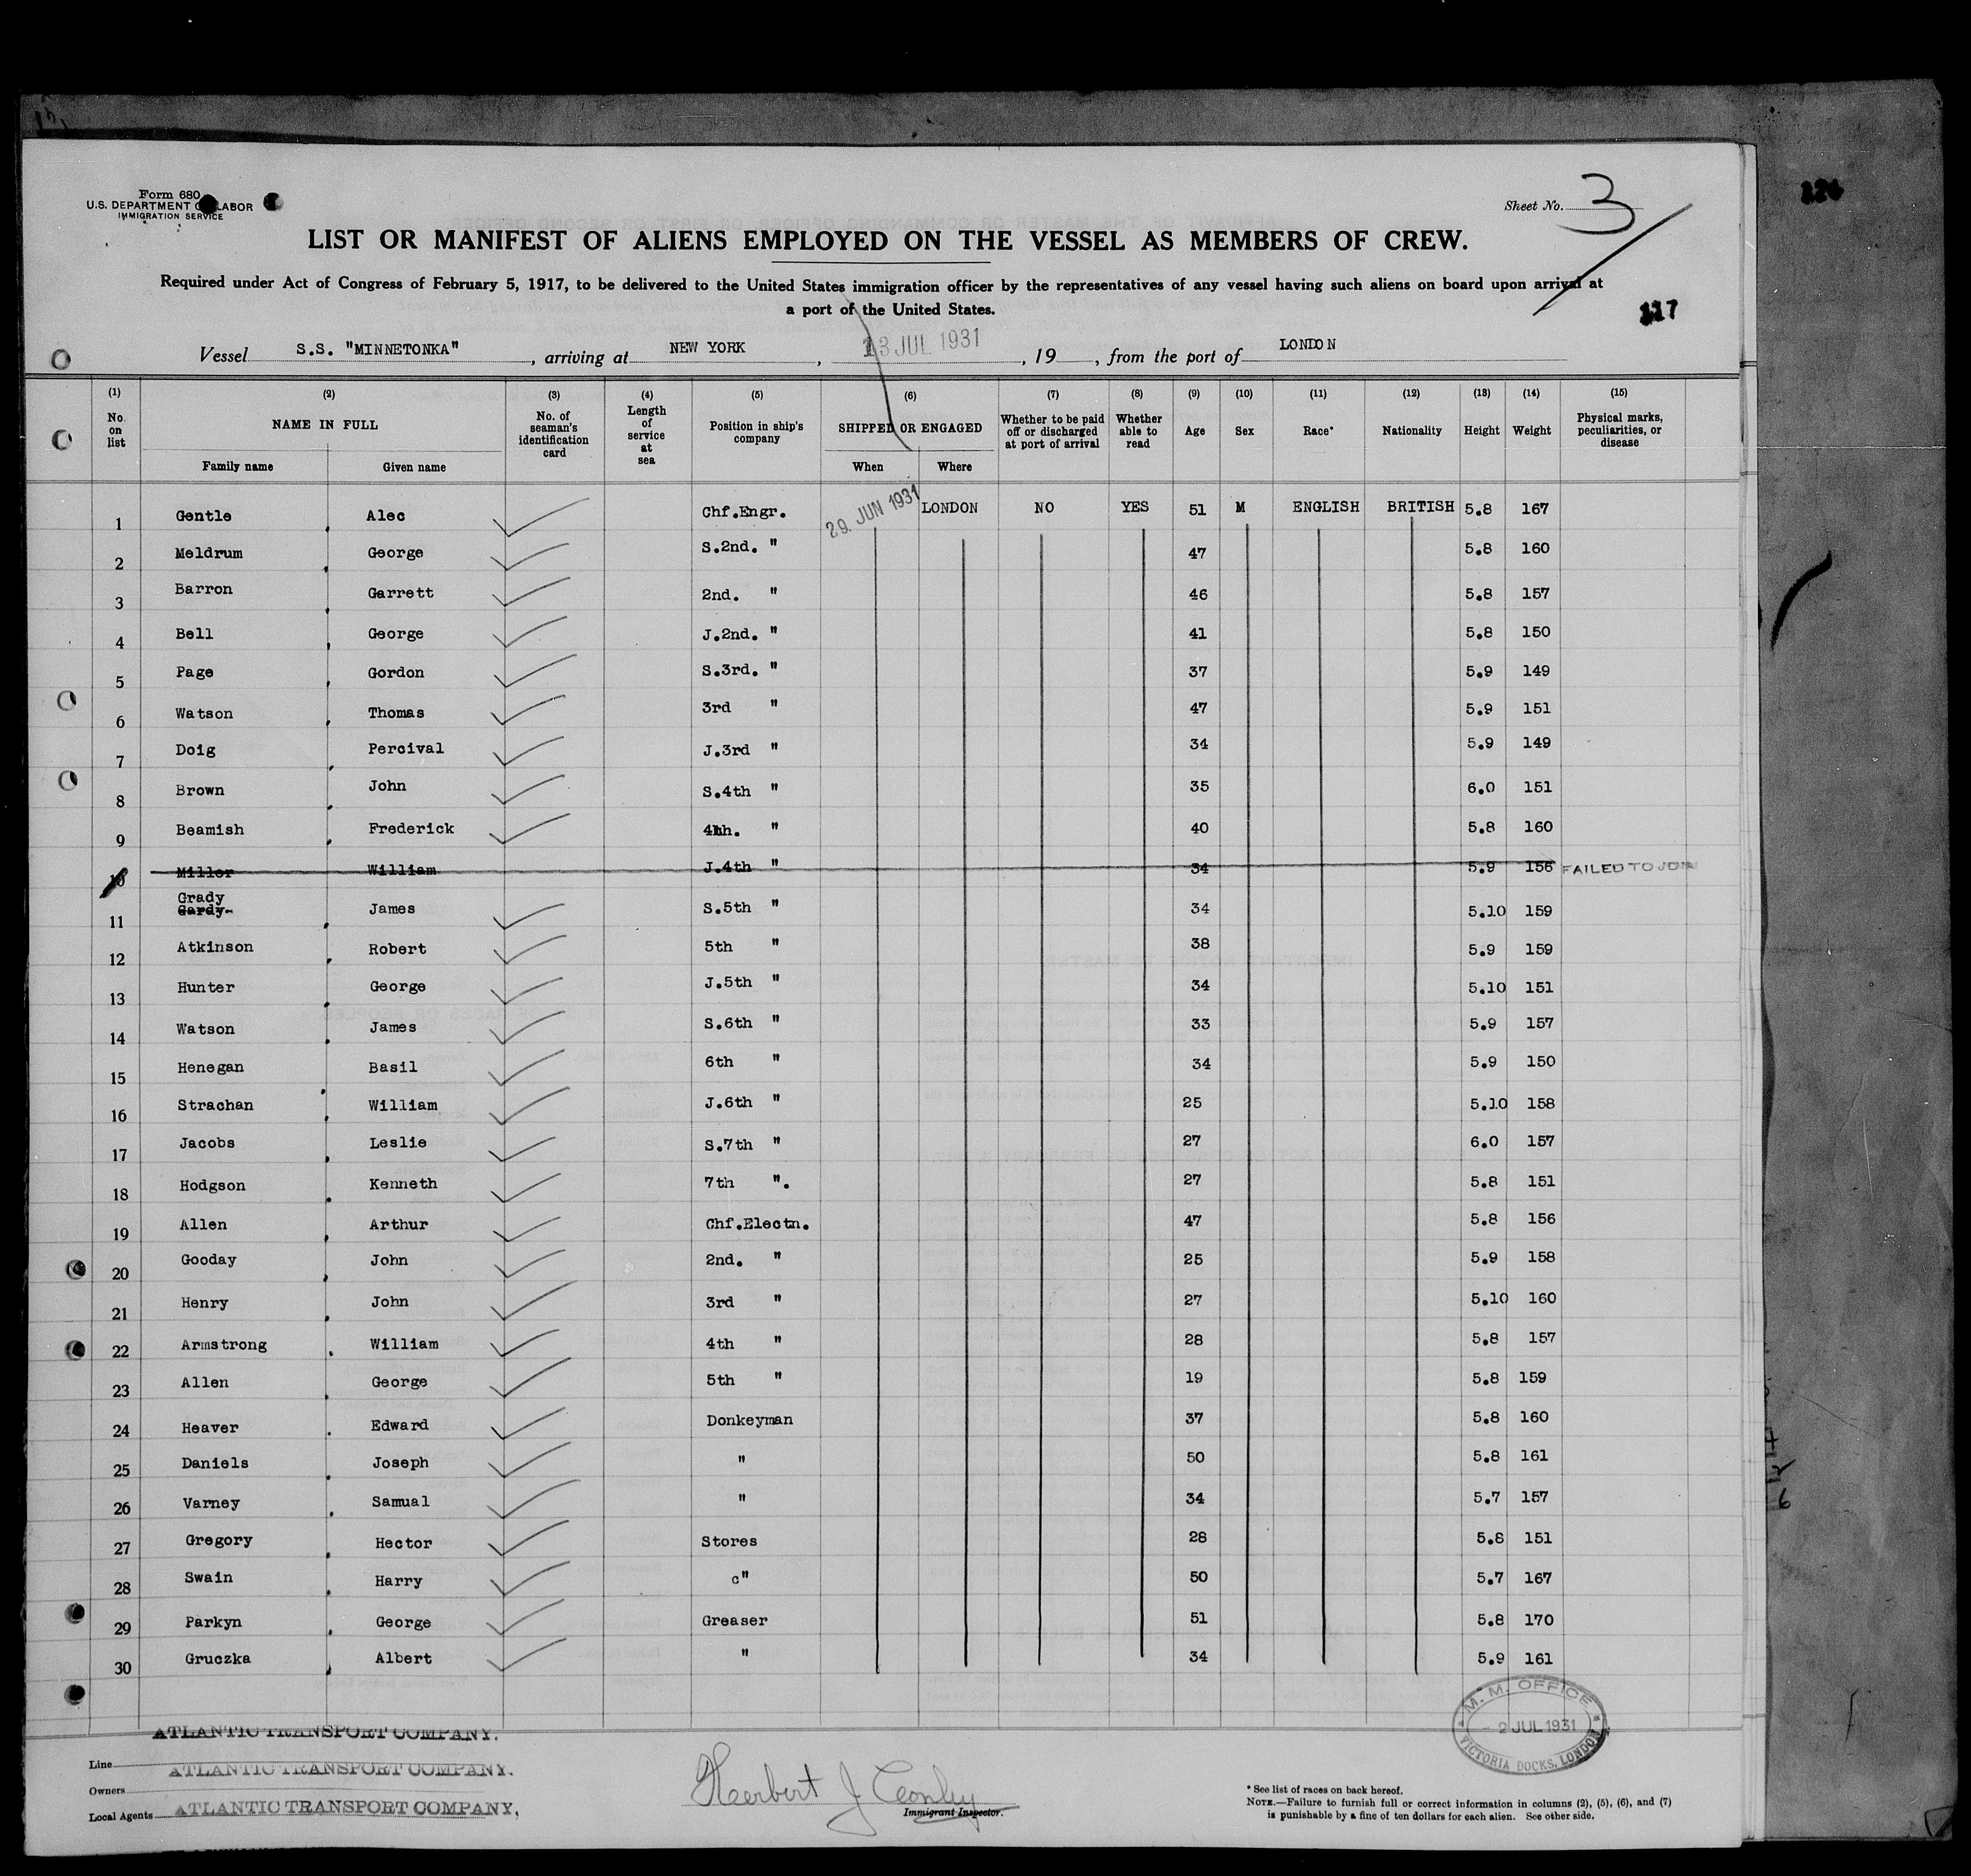 Form 680
U.S. DEPARTMENT OF LABOR
IMMIGRATION SERVICE
Sheet No. 3
LIST OR MANIFEST OF ALIENS EMPLOYED ON THE VESSEL AS MEMBERS OF CREW.
Required under Act of Congress of February 5, 1917, to be delivered to the United States immigration officer by the representatives of any vessel having such aliens on board upon arrival at
a port of the United States.
117
Vessel S.S. "MINNETONKA", arriving at NEW YORK, 13 JUL 1931, 19, from the port of LONDON
(1) (2) (3) (4) (5) (6) (7) (8) (9) (10) (11) (12) (13) (14) (15)
No. on list NAME IN FULL No. of seaman's identification card Length of service at sea Position in ship's company SHIPPED OR ENGAGED Whether to be paid off or discharged at port of arrival Whether able to read Age Sex Race* Nationality Height Weight Physical marks, peculiarities, or disease
Family name Given name When Where
1 Gentle, Alec Chf.Engr. 29. JUN 1931 LONDON NO YES 51 M ENGLISH BRITISH 5.8 167
2 Meldrum, George S.2nd. " 47 5.8 160
3 Barron, Garrett 2nd. " 46 5.8 157
4 Bell, George J.2nd. " 41 5.8 150
5 Page, Gordon S.3rd. " 37 5.9 149
6 Watson, Thomas 3rd " 47 5.9 151
7 Doig, Percival J.3rd " 34 5.9 149
8 Brown, John S.4th " 35 6.0 151
9 Beamish, Frederick 4th. " 40 5.8 160
10 Miller William J.4th " 34 5.9 156 FAILED TO JOIN
Grady
11 Gardy, James S.5th " 34 5.10 159
12 Atkinson, Robert 5th " 38 5.9 159
13 Hunter, George J.5th " 34 5.10 151
14 Watson, James S.6th " 33 5.9 157
15 Henegan, Basil 6th " 34 5.9 150
16 Strachan, William J.6th " 25 5.10 158
17 Jacobs, Leslie S.7th " 27 6.0 157
18 Hodgson, Kenneth 7th ". 27 5.8 151
19 Allen, Arthur Chf.Electn. 47 5.8 156
20 Gooday, John 2nd. " 25 5.9 158
21 Henry, John 3rd " 27 5.10 160
22 Armstrong, William 4th " 28 5.8 157
23 Allen, George 5th " 19 5.8 159
24 Heaver, Edward Donkeyman 37 5.8 160
25 Daniels, Joseph " 50 5.8 161
26 Varney, Samual " 34 5.7 157
27 Gregory, Hector Stores 28 5.8 151
28 Swain, Harry c" 50 5.7 167
29 Parkyn, George Greaser 51 5.8 170
30 Gruczka, Albert " 34 5.9 161
M. M. OFFICE
- 2 JUL 1931
VICTORIA DOCKS, LONDON
ATLANTIC TRANSPORT COMPANY.
Line ATLANTIC TRANSPORT COMPANY.
Owners
Local Agents ATLANTIC TRANSPORT COMPANY,
Herbert J
Immigrant Inspector.
* See list of races on back hereof.
NOTE.—Failure to furnish full or correct information in columns (2), (5), (6), and (7)
is punishable by a fine of ten dollars for each alien. See other side.